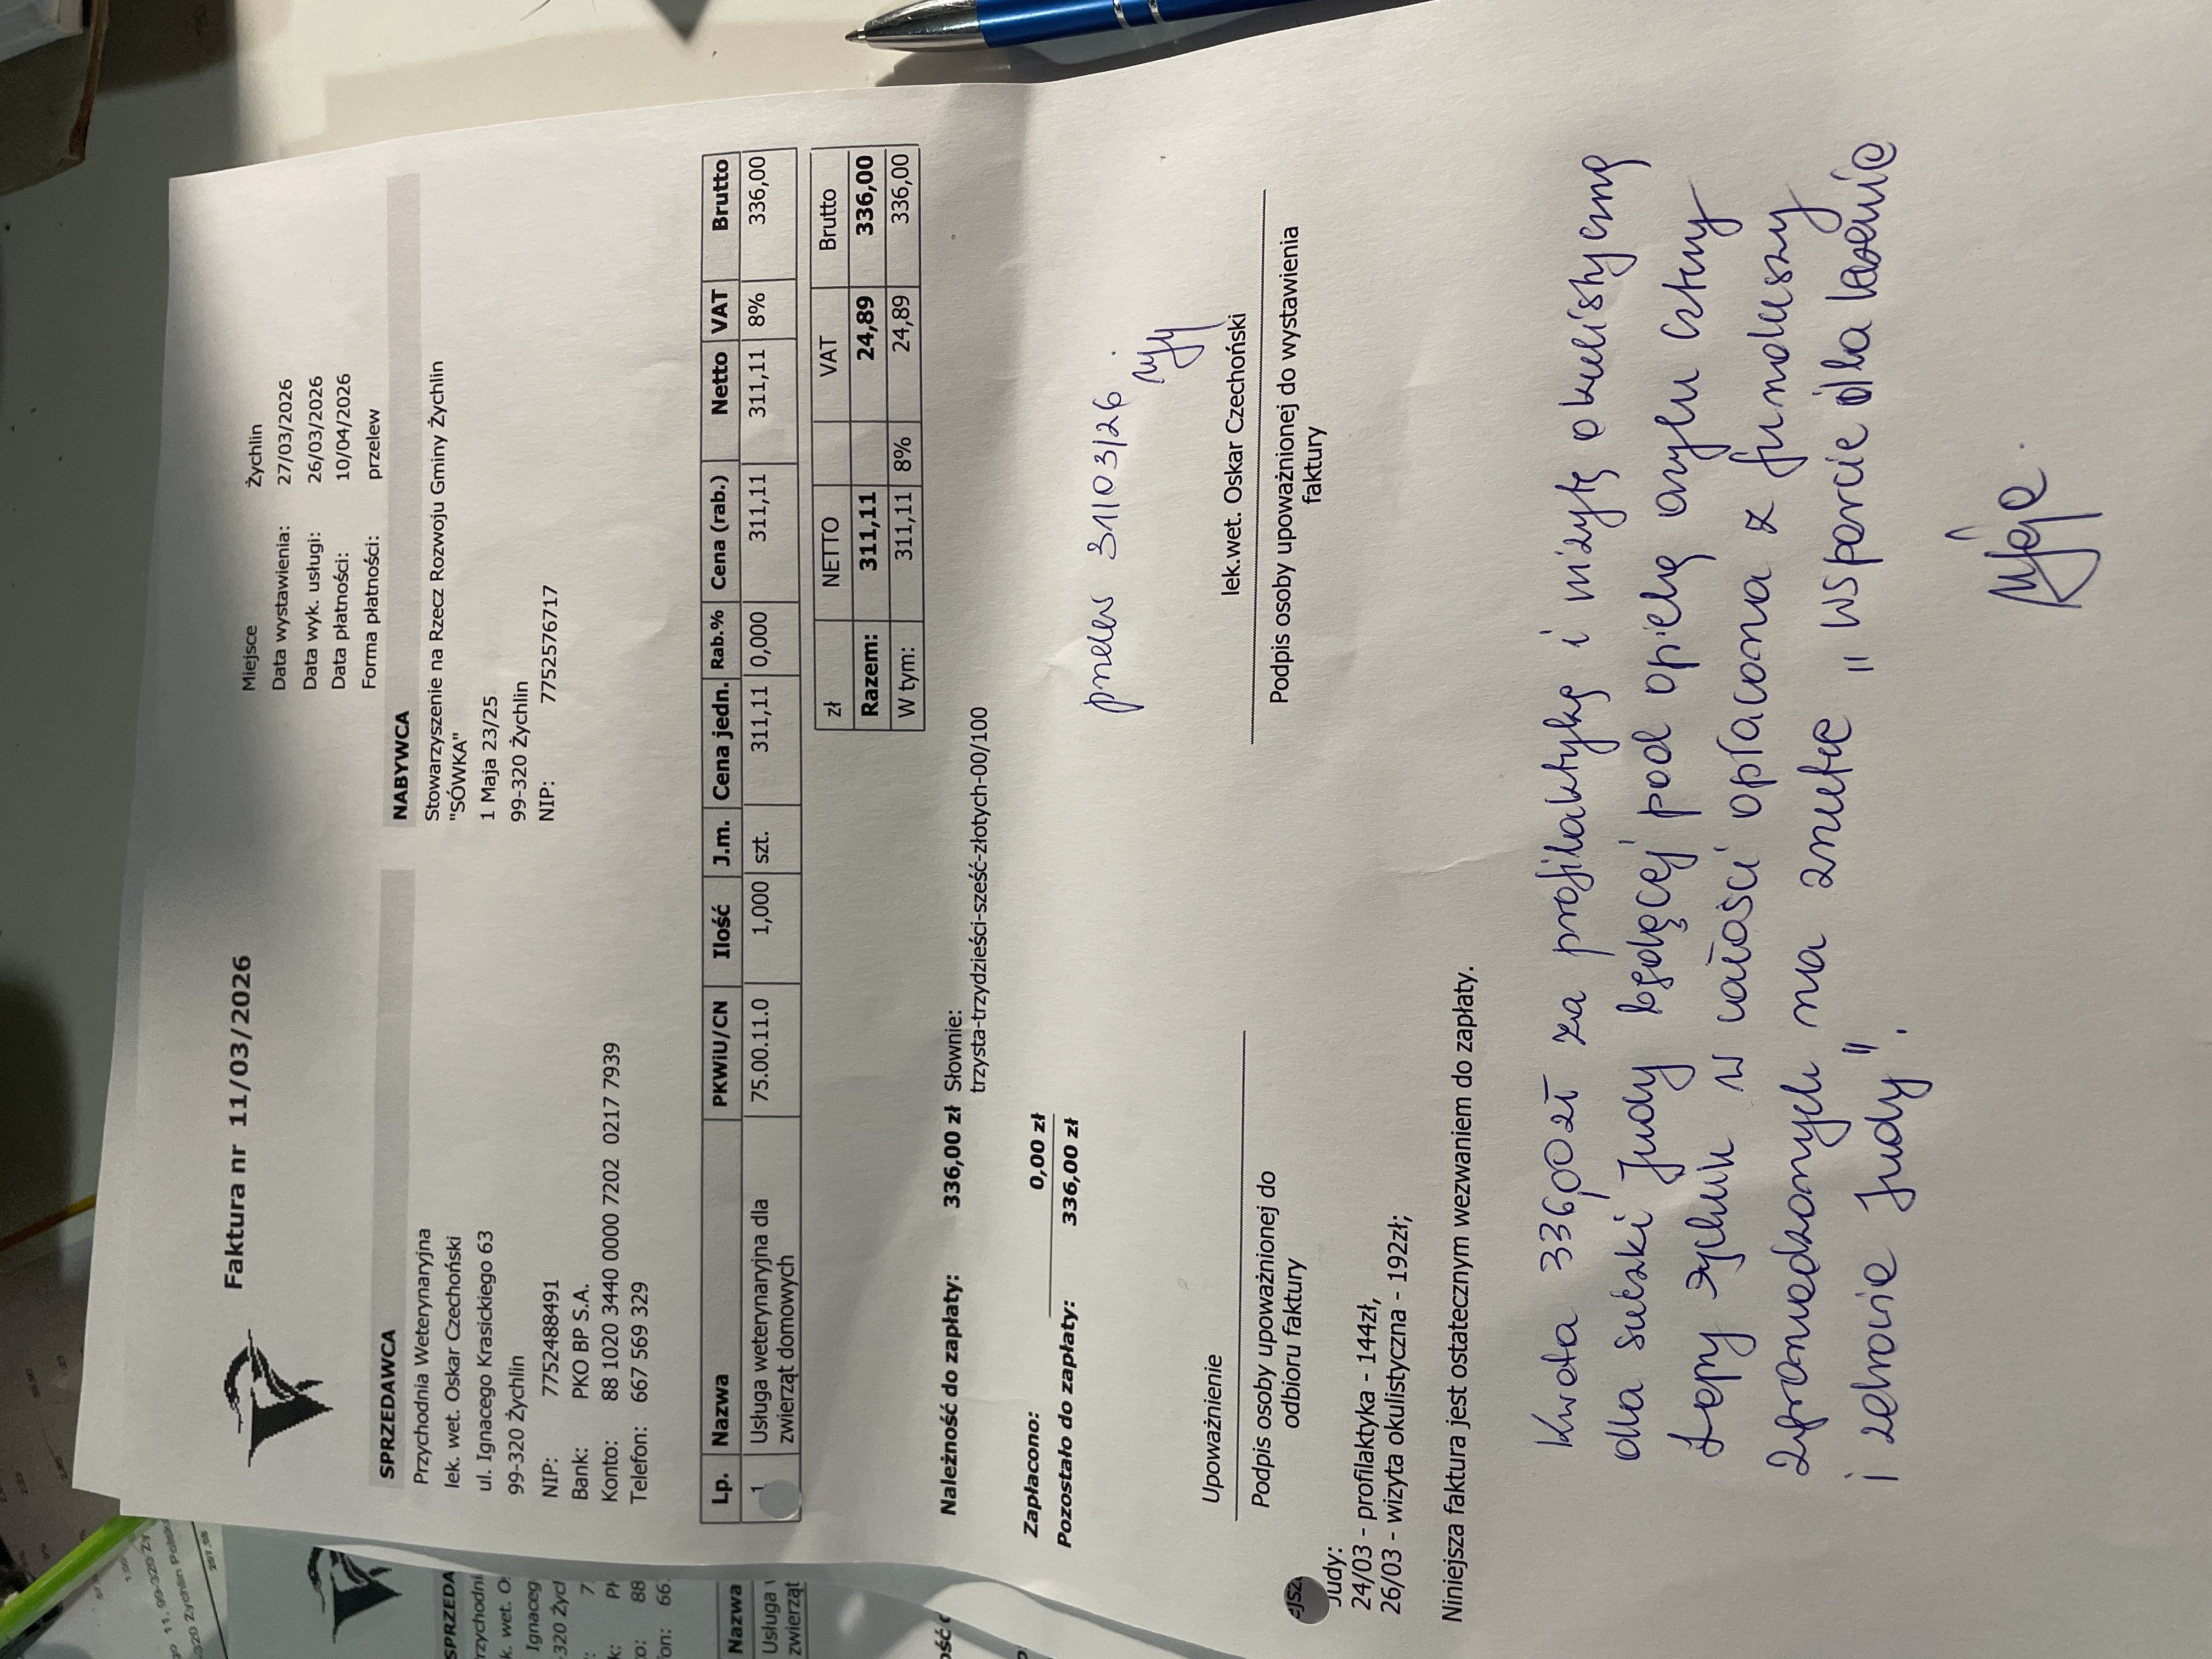 Faktura nr 11/03/2026
Miejsce Żychlin
Data wystawienia: 27/03/2026
Data wyk. usługi: 26/03/2026
Data płatności: 10/04/2026
Forma płatności: przelew
SPRZEDAWCA
Przychodnia Weterynaryjna
lek. wet. Oskar Czechoński
ul. Ignacego Krasickiego 63
99-320 Żychlin
NIP: 7752488491
Bank: PKO BP S.A.
Konto: 88 1020 3440 0000 7202 0217 7939
Telefon: 667 569 329
NABYWCA
Stowarzyszenie na Rzecz Rozwoju Gminy Żychlin
"SÓWKA"
1 Maja 23/25
99-320 Żychlin
NIP: 7752576717
Lp. Nazwa PKWiU/CN Ilość J.m. Cena jedn. Rab.% Cena (rab.) Netto VAT Brutto
1 Usługa weterynaryjna dla 75.00.11.0 1,000 szt. 311,11 0,000 311,11 311,11 8% 336,00
zwierząt domowych
zł NETTO VAT Brutto
Razem: 311,11 24,89 336,00
W tym: 311,11 8% 24,89 336,00
Należność do zapłaty: 336,00 zł Słownie:
trzysta-trzydzieści-sześć-złotych-00/100
Zapłacono: 0,00 zł
Pozostało do zapłaty: 336,00 zł
przelew 31/03/26.
Upoważnienie
Podpis osoby upoważnionej do
odbioru faktury
lek.wet. Oskar Czechoński
Podpis osoby upoważnionej do wystawienia
faktury
Judy:
24/03 - profilaktyka - 144zł,
26/03 - wizyta okulistyczna - 192zł;
Niniejsza faktura jest ostatecznym wezwaniem do zapłaty.
Kwota 336,00 zł za profilaktykę i wizytę okulistyczną
dla suczki Judy będącej pod opieką azylu cztery
Łapy Żychlin w całości opłacona z funduszy
zgromadzonych na zrzutce "wsparcie dla
i zdrowie Judy".
SPRZEDA
rzychodni
k. wet. O
Ignaceg
Nazwa
Usługa
zwierząt